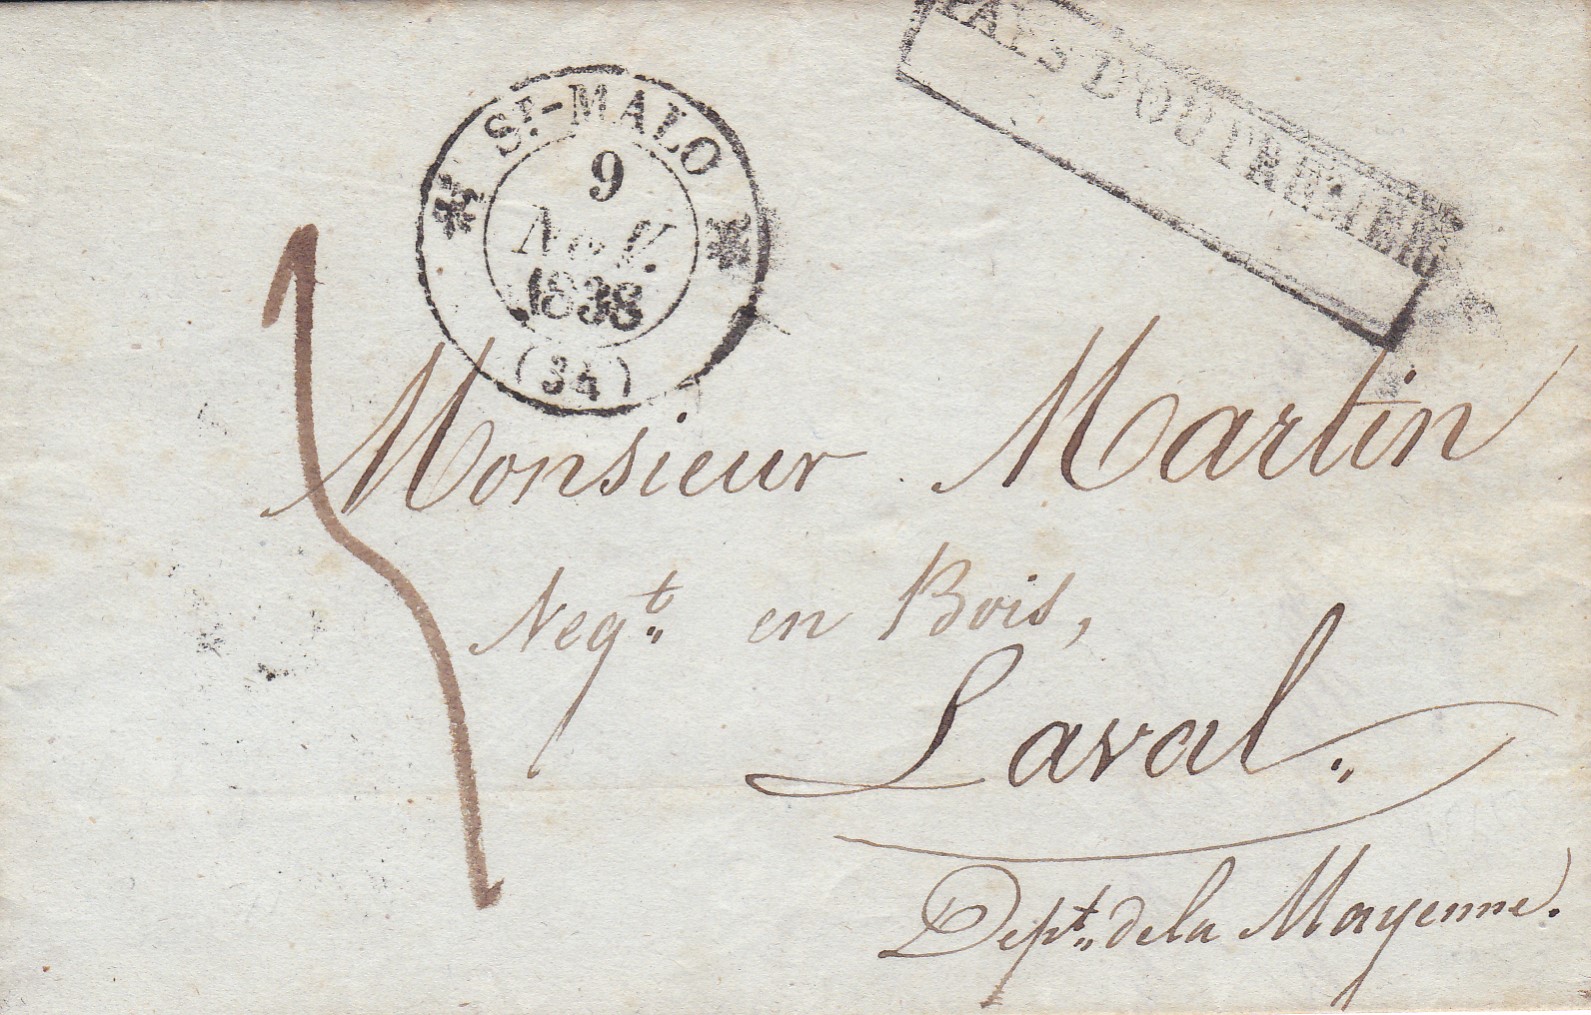 PAYS D'OUTREMER
ST.-MALO
9
NOV.
1838
(34)
Monsieur Martin
Negt. en Bois,
Laval.
Dept. de la Mayenne.